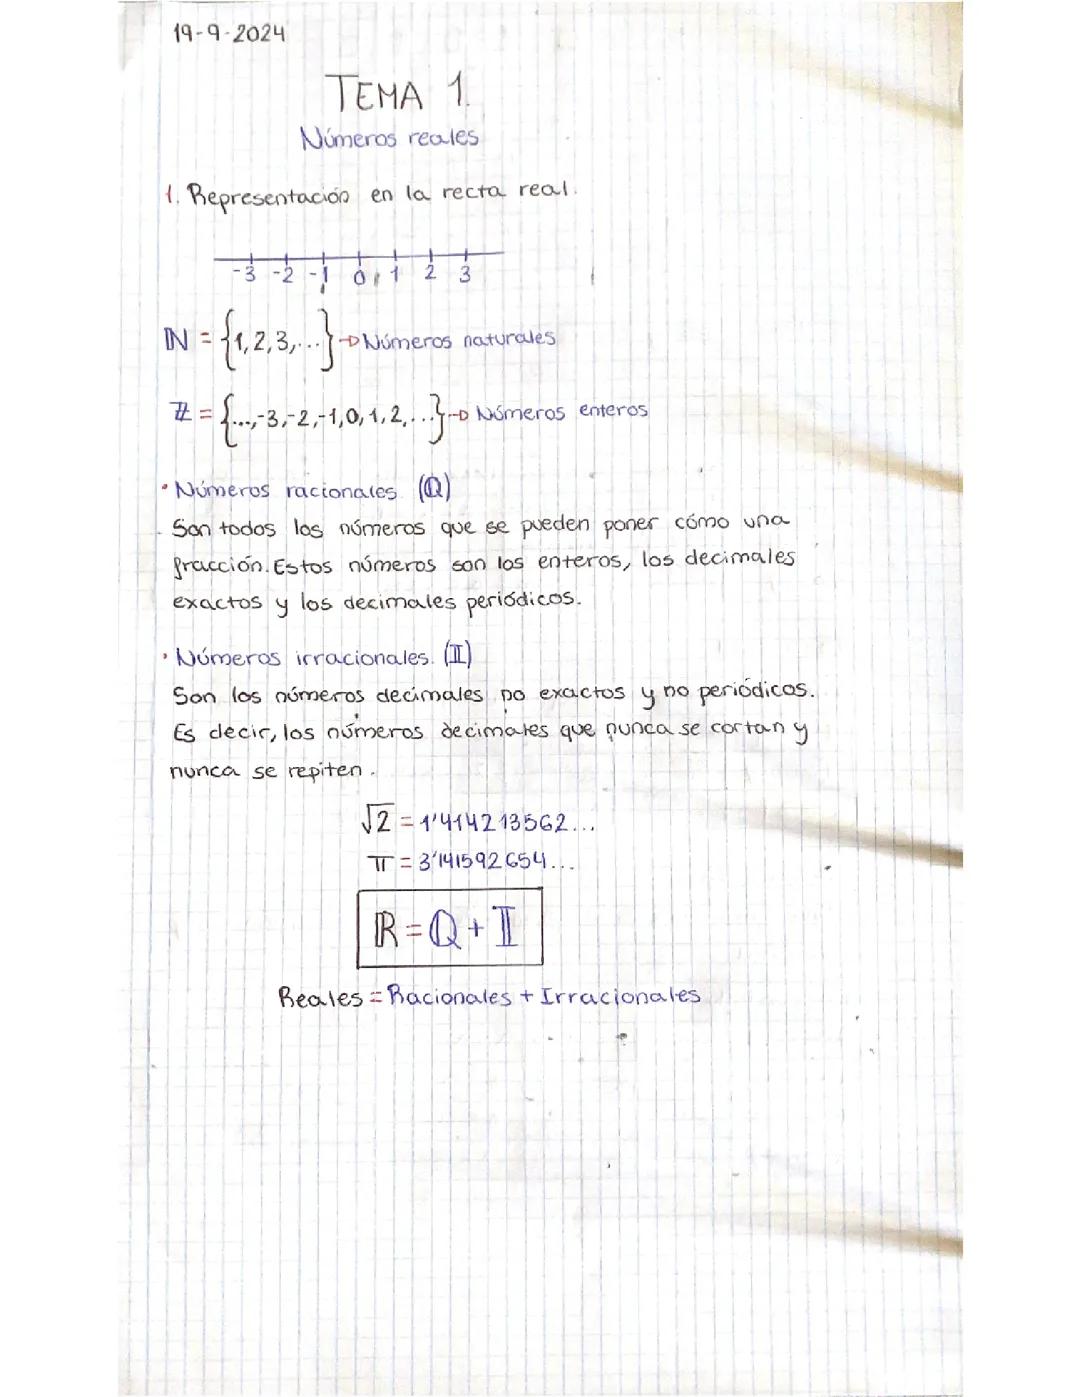 19-9-2024
TEMA 1.
Números reales
1. Representación en la recta real.
-3 -2 -1 0 1 2 3
ℕ = {1,2,3,...} → Números naturales
ℤ = {...,-3,-2,-1,0,1,2,...} → Números enteros
· Números racionales (ℚ)
Son todos los números que se pueden poner cómo una
fracción. Estos números son los enteros, los decimales
exactos y los decimales periódicos.
· Números irracionales. (𝕀)
Son los números decimales no exactos y no periódicos.
Es decir, los números decimales que nunca se cortan y
nunca se repiten.
√2 = 1'414213562...
π = 3'141592654...
ℝ = ℚ + 𝕀
Reales = Racionales + Irracionales